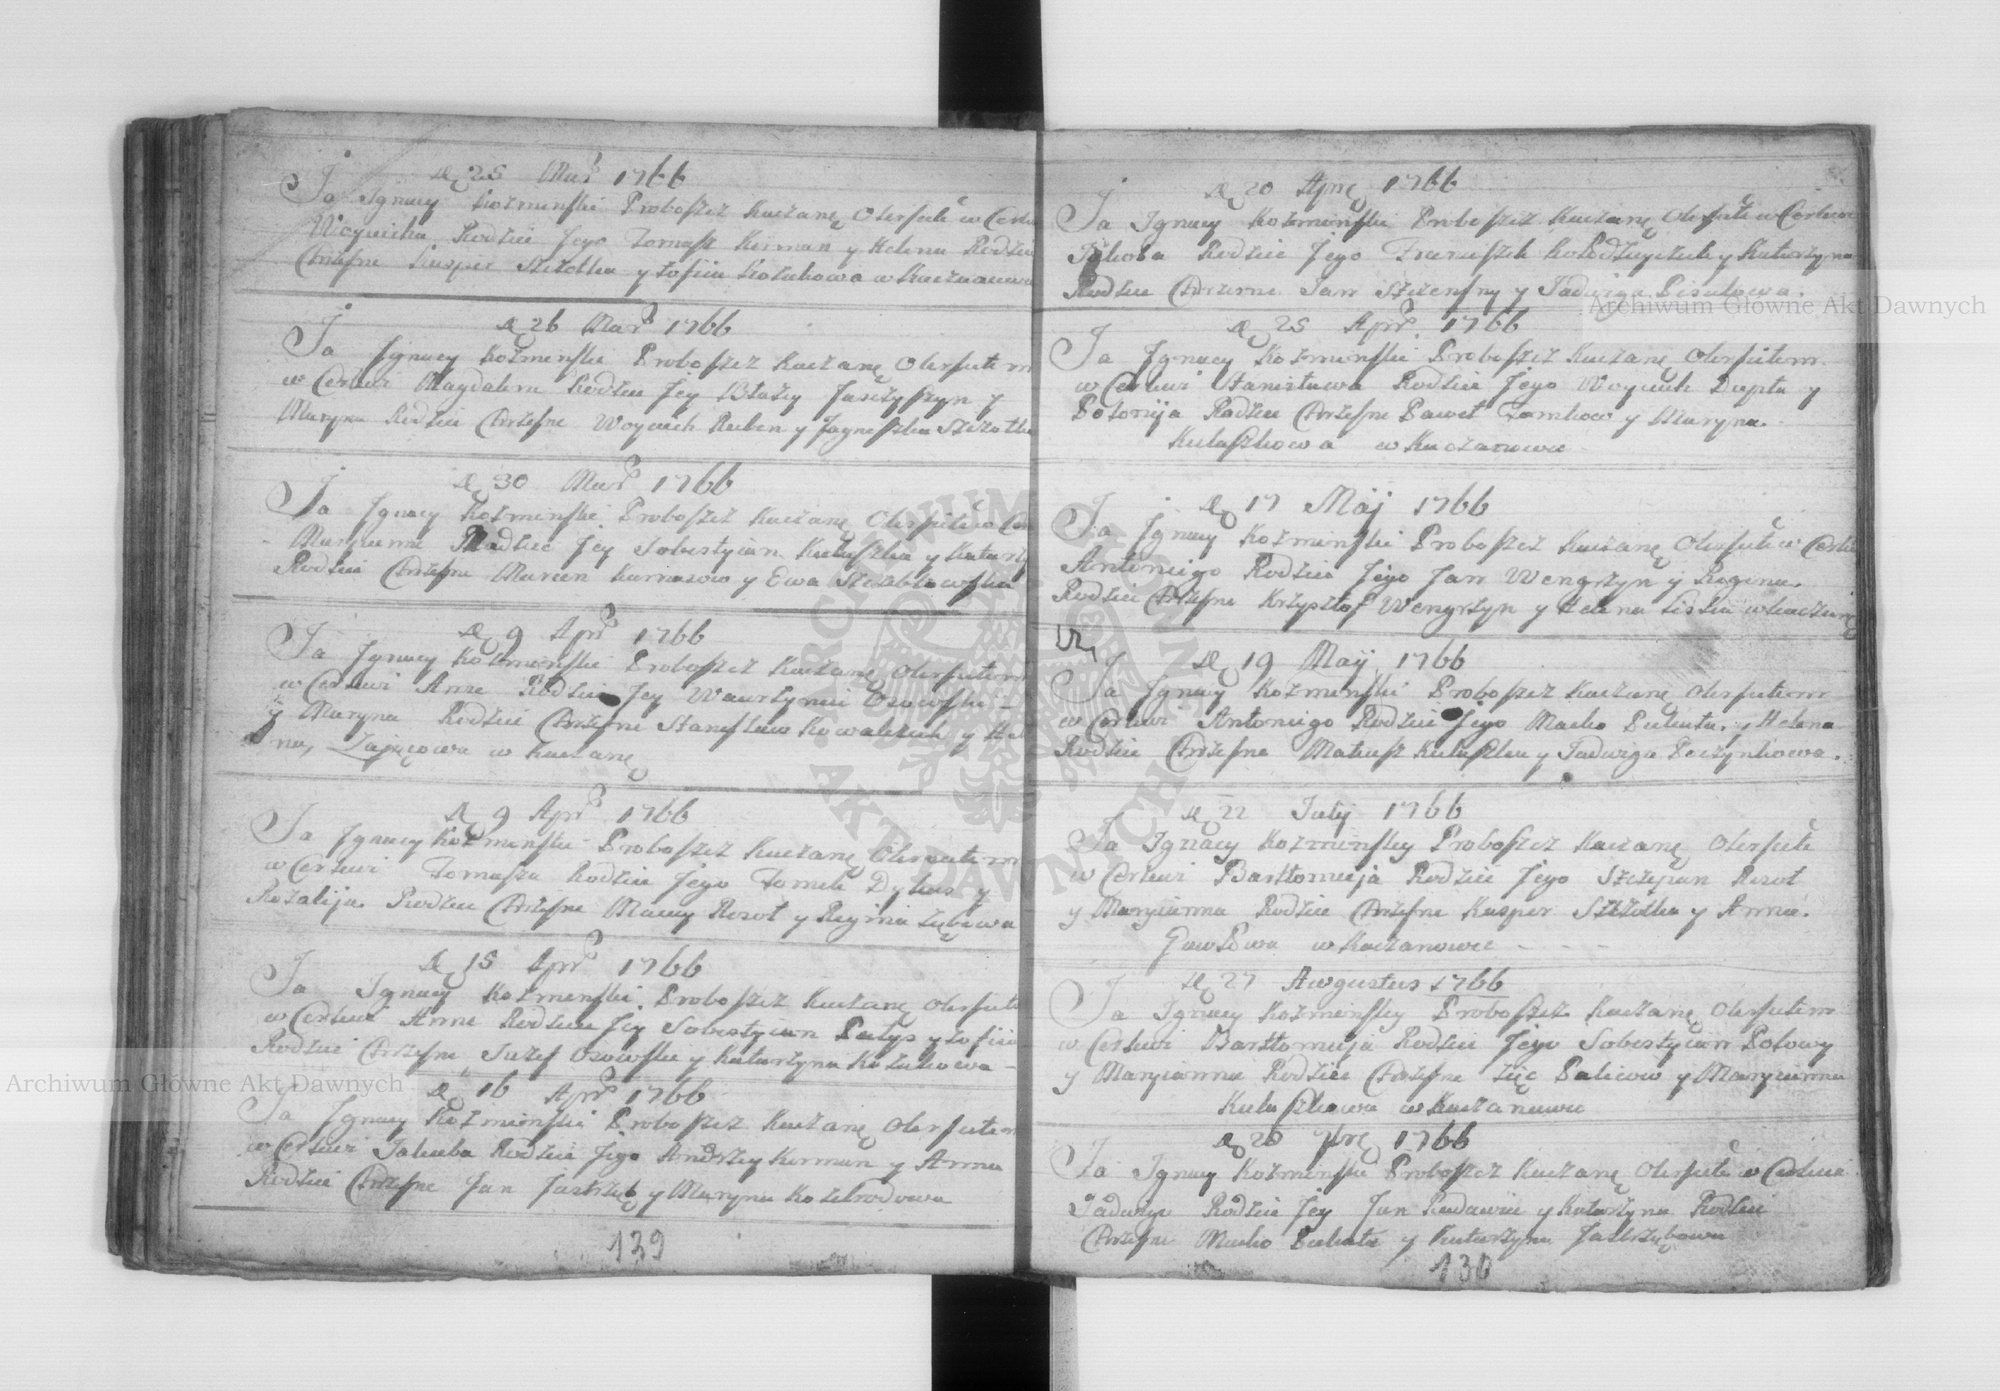 D 25 Mar 1766
Ja Ignacy Kozminski Proboszcz Kaczanę Okrściłe w Cerkw
Woyciecha Rodzice Jego Tomasz Kirman y Helena Rodzice
Chrzesne Kasper Szczotka y Zofiia Kozakowa w Kaczanowce
D 26 Mar 1766
Ja Ignacy Kozminski Proboszcz Kaczanę Okrściłem
w Cerkwi Magdalene Rodzice Jey Błażey Jaszczyszyn y
Maryna Rodzice Chrzesne Woyciech Ruben y Jagneszka Szczotka
D 30 Mar 1766
Ja Ignacy Kozminski Proboszcz Kaczanę Okrściłe w Cer
Maryanne Rodzice Jey Sobestyian Kuluszka y Katarz
Rodzice Chrzesne Marcin Karnasow y Ewa
D 9 Apr 1766
Ja Ignacy Kozminski Proboszcz Kaczanę Okrściłem
w Cerkwi Anne Rodzice Jey Wawrzyniec Osowski
y Maryna Rodzice Chrzesne Stanisław Kowalczuk y He
na, Zającowa w Kaczanę
D 9 Apr 1766
Ja Ignacy Kozminski Proboszcz Kaczanę Okrściłem
w Cerkwi Tomasza Rodzice Jego Tomek Dykus y
Rozalija Rodzice Chrzesne Maciey Rozoł y Regina Zębowa
D 15 Apr 1766
Ja Ignacy Kozminski Proboszcz Kaczanę Okrściłe
w Cerkwi Anne Rodzice Jey Sobestyian Patys y Zofiia
Rodzice Chrzesne Juzef Osowski y Katarzyna Kozakowa
D 16 Apr 1766
Ja Ignacy Kozminski Proboszcz Kaczanę Okrściłem
w Cerkwi Jakuba Rodzice Jego Andrzey Kirman y Anna
Rodzice Chrzesne Jan Jastrząb y Maryna Kozibrodowa
139
D 20 Aprę 1766
Ja Ignacy Kozminski Proboszcz Kaczanę Okrściłe w Cerkwi
Jakoba Rodzice Jego Franciszek Kołodzieyczuk y Katarzyna
Rodzice Chrzesne Jan Szczensny y Jadwiga Pisulowa.
D 25 Apr 1766
Ja Ignacy Kozminski Proboszcz Kaczanę Okrściłem
w Cerkwi Stanisława Rodzice Jego Woyciech Dupta y
Polonija Rodzice Chrzesne Paweł Zamkow y Maryna
Kuluszkowa w Kaczanowce
D 17 Maj 1766
Ja Ignacy Kozminski Proboszcz Kaczanę Okrściłe w Cerkw
Antoniego Rodzice Jego Jan Wengrzyn y Regina.
Rodzice Chrzesne Krzysztof Wengrzyn y Helena Liska w Kaczanę
D 19 Maij 1766
Ja Ignacy Kozminski Proboszcz Kaczanę Okrściłem
w Cerkwi Antoniego Rodzice Jego Macko Pukuta y Helena
Rodzice Chrzesne Mateusz Kuluszka y Jadwiga Boczynkowa.
D 22 Julij 1766
Ja Ignacy Kozminskey Proboszcz Kaczanę Okrściłe
w Cerkwi Bartłomieja Rodzice Jego Szczepan Rozoł
y Maryianna Rodzice Chrzesne Kasper Szczotka y Anna.
Gawłowa w Kaczanowce
D 27 Awgustus 1766
Ja Ignacy Kozminskey Proboszcz Kaczanę Okrściłem
w Cerkwi Bartłomieja Rodzice Jego Sobestyian Połowy
y Maryianna Rodzice Chrzesne Palicow y Maryianna
Kuluszkowa w Kaczanowce
D 28 1766
Ja Ignacy Kozminski Proboszcz Kaczanę Okrściłe w Cerkwi
Jadwige Rodzice Jey Jan Rudawiec y Katarzyna Rodzice
Chrzesne Macko Pukuta y Katarzyna Jastrzębowa
130
Archiwum Główne Akt Dawnych
Archiwum Główne Akt Dawnych
ARCHIWUM GŁÓWNE AKT DAWNYCH